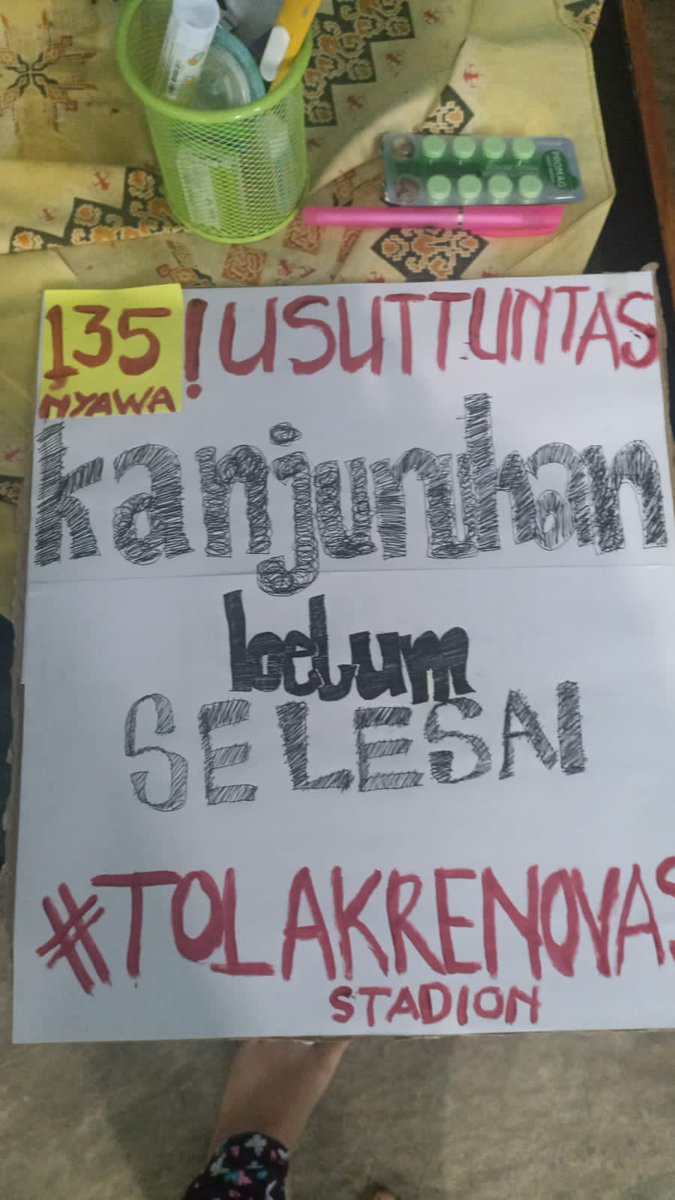 135 ! USUTTUNTAS
NYAWA
kanjuruhan
belum
SELESAI
#TOLAKRENOVAS
STADION
PROMAG